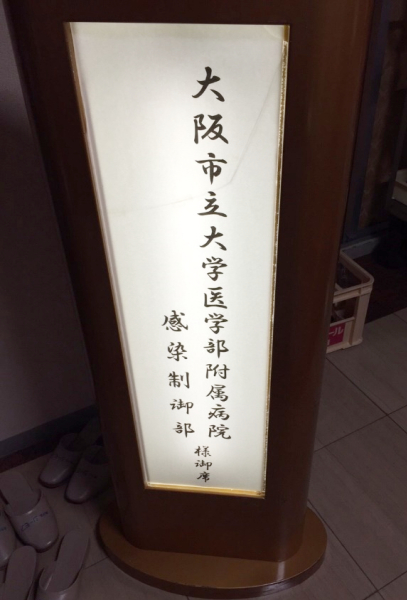 大阪市立大学医学部附属病院
感染制御部
様御席